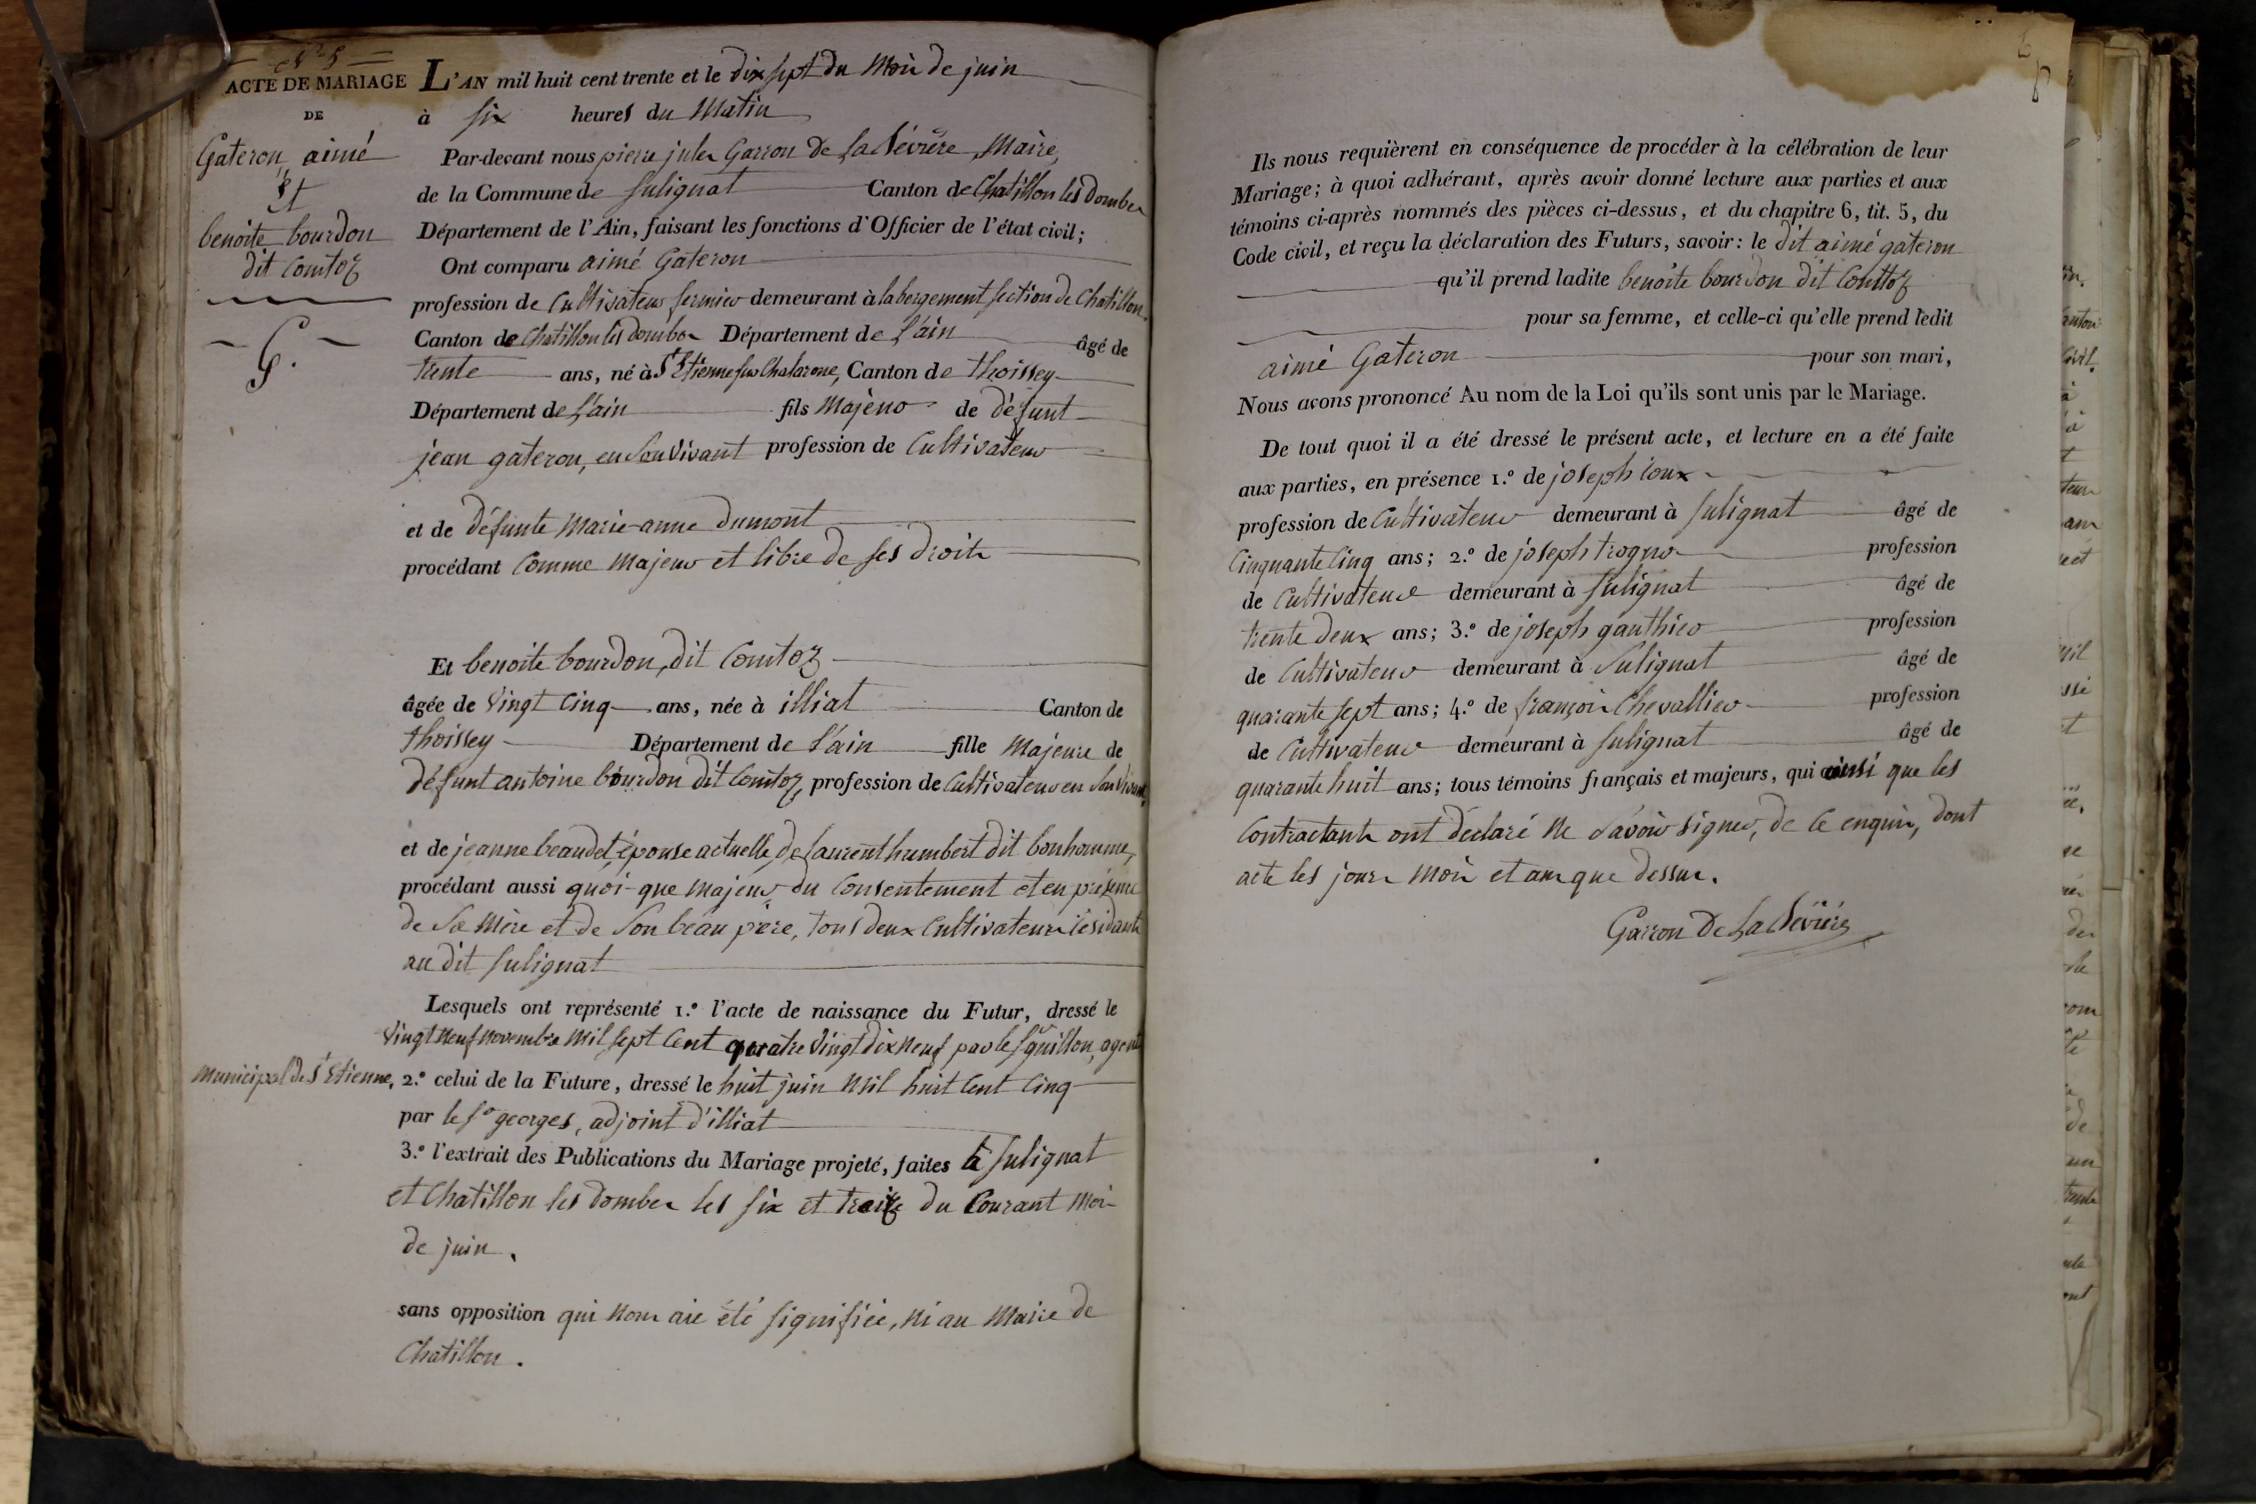 N.º 5
ACTE DE MARIAGE
DE
Gateron, aimé
Et
benoite bourdon
dit Comtoz
G.
L'AN mil huit cent trente et le dix sept du Mois de juin
à six heures du Matin
Par-devant nous pierre jules Garron De La Sévière, Maire,
de la Commune de Sulignat Canton de Chatillon les Dombes
Département de l'Ain, faisant les fonctions d'Officier de l'état civil;
Ont comparu aimé Gateron
profession de Cultivateur fermier demeurant à labergement section de Chatillon
Canton de Chatillon les Dombes Département de L'ain âgé de
trente ans, né à St Etienne sur Chalarone, Canton de thoissey
Département de L'ain fils Majeur de défunt
jean gateron, en son vivant profession de Cultivateur
et de défunte Marie-anne dumont
procédant Comme Majeur et libre de ses droits
Et benoite bourdon, dit Comtoz
âgée de vingt cinq ans, née à illiat Canton de
thoissey Département de L'ain fille Majeure de
défunt antoine bourdon dit Comtoz, profession de Cultivateur en son vivant,
et de jeanne beaudet, épouse actuelle, de laurent humbert dit bonhomme,
procédant aussi quoi-que majeur, du Consentement et en présence
de sa Mère et de son beau père, tous deux Cultivateurs résidants
au dit Sulignat
Lesquels ont représenté 1.º l'acte de naissance du Futur, dressé le
vingt neuf novembre Mil sept Cent quatre vingt dix neuf par le Sr guillon, agent
Municipal de St Etienne, 2.º celui de la Future, dressé le huit juin Mil huit Cent Cinq
par le Sr georges, adjoint d'illiat
3.º l'extrait des Publications du Mariage projeté, faites à Sulignat
et Chatillon les Dombes les six et treize du Courant Mois
de juin.
sans opposition qui nous aie été signifiée, ni au Maire de
Chatillon.
Ils nous requièrent en conséquence de procéder à la célébration de leur
Mariage; à quoi adhérant, après avoir donné lecture aux parties et aux
témoins ci-après nommés des pièces ci-dessus, et du chapitre 6, tit. 5, du
Code civil, et reçu la déclaration des Futurs, savoir: le dit aimé gateron
qu'il prend ladite benoite bourdon dit Comtoz
pour sa femme, et celle-ci qu'elle prend ledit
aimé Gateron pour son mari,
Nous avons prononcé Au nom de la Loi qu'ils sont unis par le Mariage.
De tout quoi il a été dressé le présent acte, et lecture en a été faite
aux parties, en présence 1.º de joseph ioux
profession de Cultivateur demeurant à Sulignat âgé de
Cinquante Cinq ans; 2.º de joseph profession
de Cultivateur demeurant à Sulignat âgé de
trente deux ans; 3.º de joseph gauthier profession
de Cultivateur demeurant à Sulignat âgé de
quarante sept ans; 4.º de françois Chevallier profession
de Cultivateur demeurant à Sulignat âgé de
quarante huit ans; tous témoins français et majeurs, qui ainsi que les
Contractants ont déclaré Ne Savoir signer, de Ce enquis, dont
acte les jours Mois et an que dessus.
Garron De La Sévière